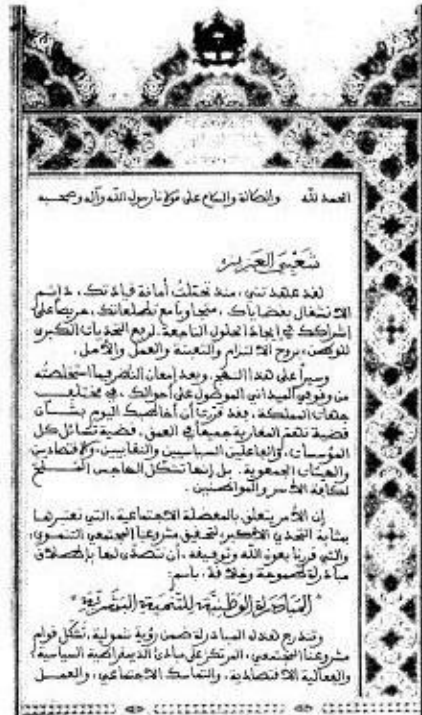 الحمد لله والصلاة والسلام على مولانا رسول الله وآله وصحبه
شعبي العزيز
لقد عهدتني، منذ تحملت أمانة قيادتك، دائم
الانشغال بقضاياك، متجاوبا مع تطلعاتك، حريصا على
إشراكك في إيجاد الحلول الناجعة، لرفع التحديات الكبرى
للوطن، بروح الالتزام والتعبئة والعمل والأمل.
وسيرا على هذا النهج، وبعد إمعان النظر فيما استخلصته
من وقوفي الميداني الموصول على أحوالك، في مختلف
جهات المملكة، فقد قررت أن أخاطبك اليوم بشأن
قضية تهم المغاربة جميعا في العمق، قضية تسائل كل
المؤسسات، والفاعلين السياسيين والنقابيين، والاقتصاديين
والهيئات الجمعوية، بل إنها تشكل الهاجس الملح
لكافة الأسر والمواطنين.
إن الأمر يتعلق بالمعضلة الاجتماعية، التي نعتبرها
بمثابة التحدي الأكبر، لتحقيق مشروعنا المجتمعي التنموي،
والتي قررنا بعون الله وتوفيقه، أن نتصدى لها بإطلاق
مبادرة طموحة وخلاقة، باسم:
"المبادرة الوطنية للتنمية البشرية"
وتندرج هذه المبادرة ضمن رؤية شمولية، تشكل قوام
مشروعنا المجتمعي، المرتكز على مبادئ الديمقراطية السياسية،
والفعالية الاقتصادية، والتماسك الاجتماعي، والعمل